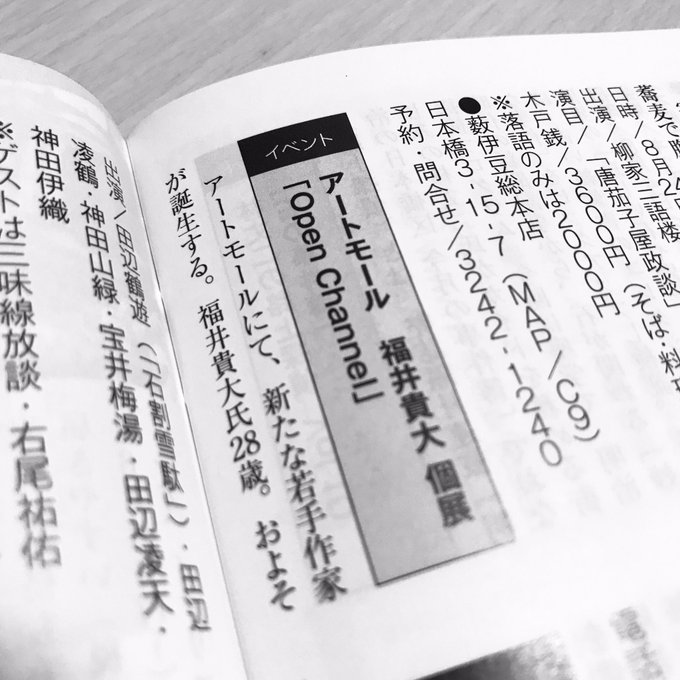 日時/8月24日
出演/柳家三語楼
演目/「唐茄子屋政談」
木戸銭/3600円(そば・料理
※落語のみは2000円
●薮伊豆総本店
日本橋3-15-7(MAP/C9)
予約・問合せ/3242-1240
イベント
アートモール 福井貴大 個展
「Open Channel」
アートモールにて、新たな若手作家
が誕生する。福井貴大氏28歳。およそ
出演/田辺鶴遊(「石割雪駄」)・田辺
凌鶴・神田山緑・宝井梅湯・田辺凌天・
神田伊織
※ゲストは三味線放談・右尾祐佑